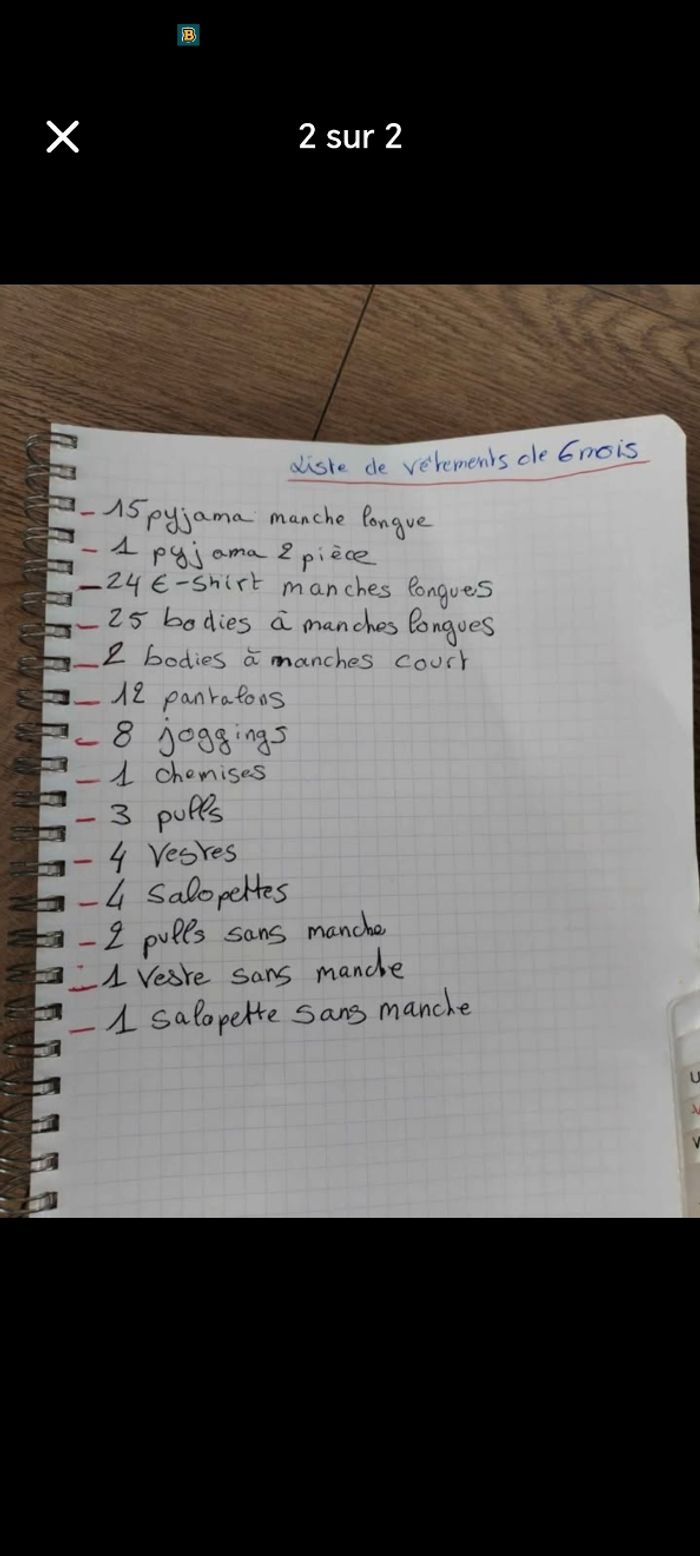 B
2 sur 2
Liste de vêtements de 6 mois
- 15 pyjama manche longue
- 1 pyjama 2 pièce
- 24 t-shirt manches longues
- 25 bodies à manches longues
- 2 bodies à manches court
- 12 pantalons
- 8 joggings
- 1 chemises
- 3 pulls
- 4 Vestes
- 4 Salopettes
- 2 pulls sans manche
- 1 Veste sans manche
- 1 Salopette sans manche
U
V